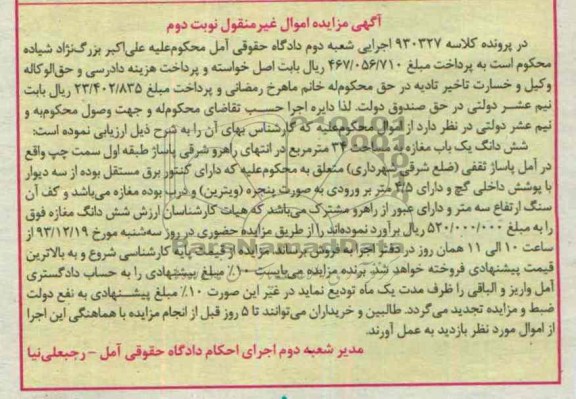 آگهی مزایده اموال غیرمنقول نوبت دوم
در پرونده کلاسه ۹۳۰۳۲۷ اجرایی شعبه دوم دادگاه حقوقی آمل محکوم‌علیه علی‌اکبر بزرگ‌نژاد شیاده
محکوم است به پرداخت مبلغ ۴۶۷/۰۵۶/۷۱۰ ریال بابت اصل خواسته و پرداخت هزینه دادرسی و حق‌الوکاله
وکیل و خسارت تاخیر تادیه در حق محکوم‌له خانم ماهرخ رمضانی و پرداخت مبلغ ۲۳/۴۰۲/۸۳۵ ریال بابت
نیم عشر دولتی در حق صندوق دولت. لذا دایره اجرا حسب تقاضای محکوم‌له و جهت وصول محکوم‌به و
نیم عشر دولتی در نظر دارد از اموال محکوم‌علیه که کارشناس بهای آن را به شرح ذیل ارزیابی نموده است:
شش دانگ یک باب مغازه به مساحت ۳۴ مترمربع در انتهای راهرو شرقی پاساژ طبقه اول سمت چپ واقع
در آمل پاساژ ثقفی (ضلع شرقی شهرداری) متعلق به محکوم‌علیه که دارای کنتور برق مستقل بوده از سه دیوار
با پوشش داخلی گچ و دارای ۴/۵ متر بر ورودی به صورت پنجره (ویترین) و درب بوده مغازه می‌باشد و کف آن
سنگ ارتفاع سه متر و دارای عبور از راهرو مشترک می‌باشد که هیات کارشناسان ارزش شش دانگ مغازه فوق
را به مبلغ ۵۲۰/۰۰۰/۰۰۰ ریال برآورد نموده‌اند را از طریق مزایده حضوری در روز سه‌شنبه مورخ ۹۳/۱۲/۱۹ از
ساعت ۱۰ الی ۱۱ همان روز در دفتر اجرا به فروش برساند مزایده از قیمت پایه کارشناسی شروع و به بالاترین
قیمت پیشنهادی فروخته خواهد شد. برنده مزایده می‌بایست ۱۰٪ مبلغ پیشنهادی را به حساب دادگستری
آمل واریز و الباقی را ظرف مدت یک ماه تودیع نماید در غیر این صورت ۱۰٪ مبلغ پیشنهادی به نفع دولت
ضبط و مزایده تجدید می‌گردد. طالبین و خریداران می‌توانند تا ۵ روز قبل از انجام مزایده با هماهنگی این اجرا
از اموال مورد نظر بازدید به عمل آورند.
مدیر شعبه دوم اجرای احکام دادگاه حقوقی آمل – رجبعلی‌نیا